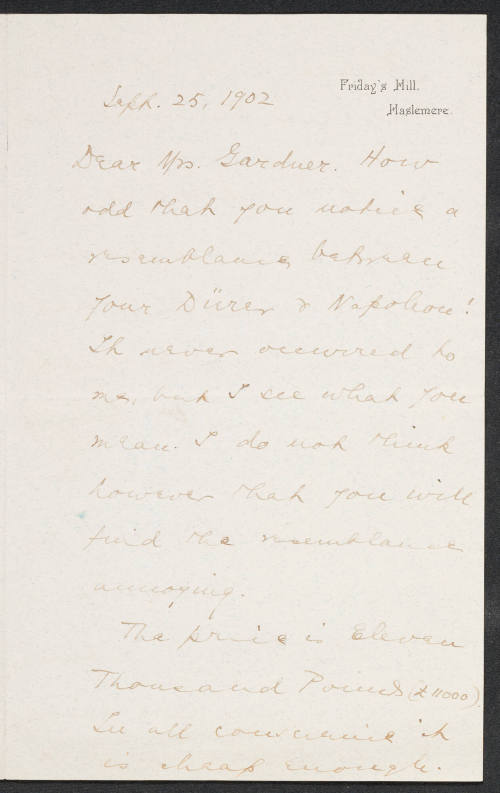 Friday's Hill.
Haslemere.
Sept. 25, 1902
Dear Mrs. Gardner. How
odd that you notice a
resemblance between
your Dürer & Napoleon!
It never occurred to
me, but I see what you
mean. I do not think
however that you will
find the resemblance
annoying.
The price is Eleven
Thousand Pounds (£11000).
In all conscience it
is cheap enough.